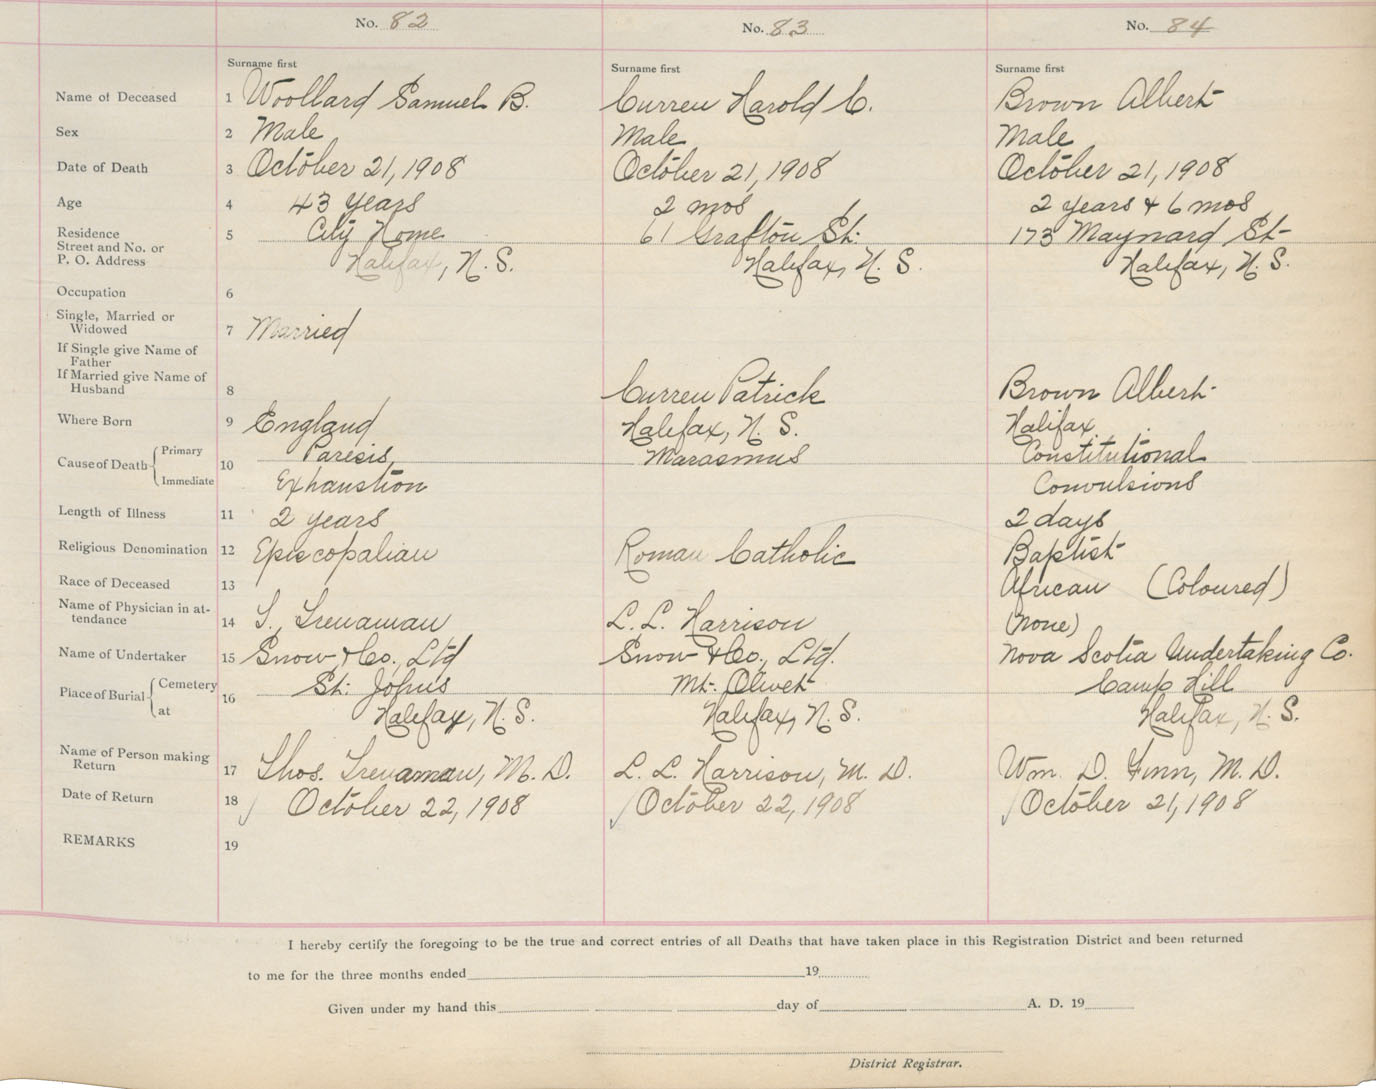 No. 82 No. 83 No. 84
Surname first Surname first Surname first
Name of Deceased 1 Woollard Samuel B. Curren Harold C. Brown Albert
Sex 2 Male Male Male
Date of Death 3 October 21, 1908 October 21, 1908 October 21, 1908
Age 4 43 years 2 mos 2 years & 6 mos
Residence 5 City Home 61 Grafton St. 173 Maynard St
Street and No. or
P. O. Address Halifax, N. S. Halifax, N. S. Halifax, N. S.
Occupation 6
Single, Married or
Widowed 7 Married
If Single give Name of
Father
If Married give Name of
Husband 8 Curren Patrick Brown Albert
Where Born 9 England Halifax, N. S. Halifax
Cause of Death Primary 10 Paresis, Marasmus Constitutional
Immediate Exhaustion Convulsions
Length of Illness 11 2 years 2 days
Religious Denomination 12 Episcopalian Roman Catholic Baptist
Race of Deceased 13 African (Coloured)
Name of Physician in at-
tendance 14 T. Trenaman L. L. Harrison (none)
Name of Undertaker 15 Snow & Co., Ltd Snow & Co., Ltd. Nova Scotia Undertaking Co.
Place of Burial Cemetery 16 St: Johns Mt. Olivet Camp Hill
at Halifax, N. S. Halifax, N. S. Halifax, N. S.
Name of Person making
Return 17 Thos. Trenaman, M. D. L. L. Harrison, M. D. Wm. D. Finn, M. D.
Date of Return 18 October 22, 1908 October 22, 1908 October 21, 1908
REMARKS 19
I hereby certify the foregoing to be the true and correct entries of all Deaths that have taken place in this Registration District and been returned
to me for the three months ended 19
Given under my hand this day of A. D. 19
District Registrar.